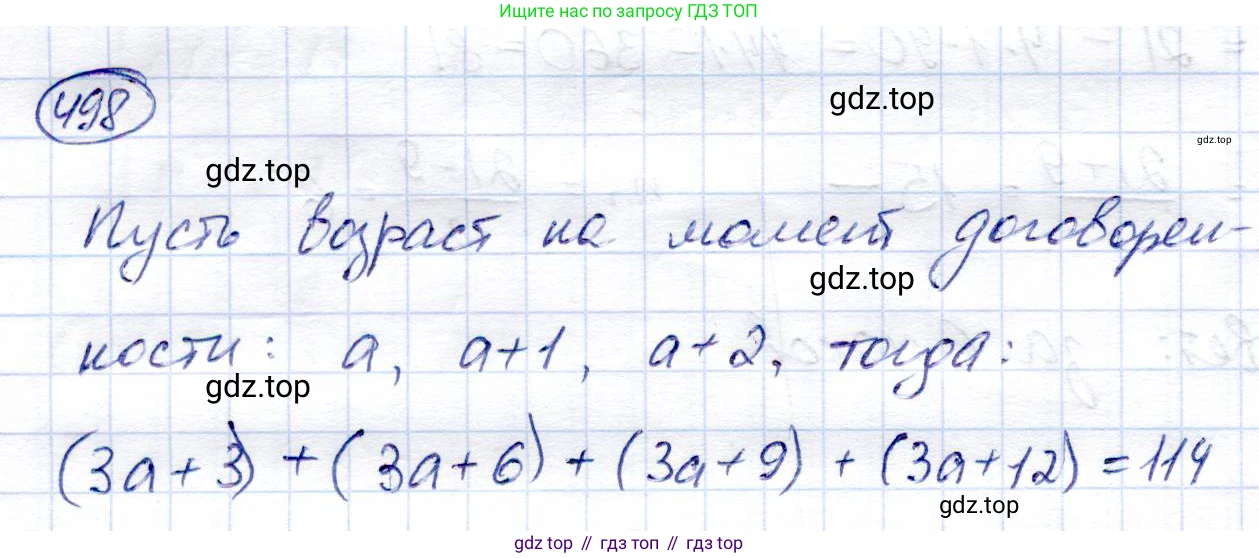 Ищите нас по запросу ГДЗ ТОП
498
gdz.top
gdz.top
gdz.top
Пусть возраст на момент договорен-
gdz.top
ности: a, a+1, a+2, тогда:
gdz.top
(3a+3)+(3a+6)+(3a+9)+(3a+12)=114
gdz.top
gdz top // гдз топ // gdz top